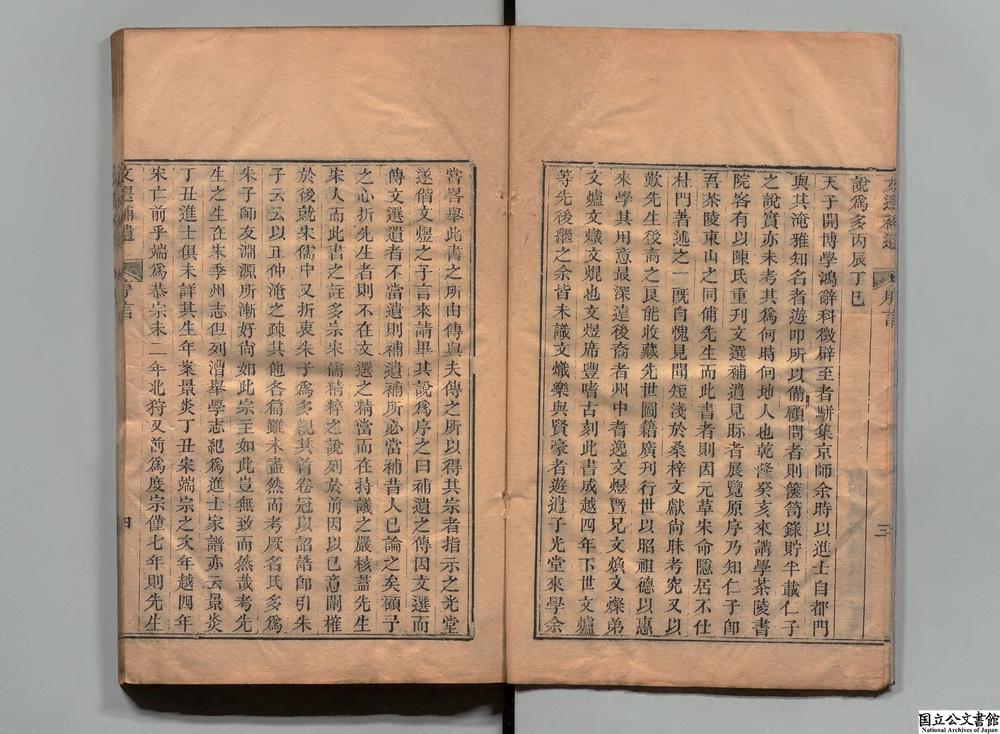 文選補遺 序言 三
說爲多丙辰丁巳
天子開博學鴻辭科徵辟至者駢集京師余時以進士自都門
與其淹雅知名者遊叩所以備顧問者則篋笥錄貯半載仁子
之說實亦未考其爲何時何地人也乾隆癸亥來講學茶陵書
院客有以陳氏重刊文選補遺見眎者展覽原序乃知仁子卽
吾茶陵東山之同俌先生而此書者則因元革宋命隱居不仕
杜門著述之一旣自愧見聞短淺於桑梓文獻尙昧考究又以
歎先生後裔之良能收藏先世圖籍廣刊行世以昭祖德以惠
來學其用意最深遠後裔者州中耆逸文煜曁兄文煥文燦弟
文爐文熾文焜也文煜席豐嗜古刻此書成越四年下世文爐
等先後繼之余皆未識文熾樂與賢豪者遊遣子光堂來學余
嘗畧舉此書之所由傳與夫傳之所以得其宗者指示之光堂
遂偕文煜之子言來請畢其說爲序之曰補遺之傳因文選而
傳文選遺者不當遺則補遺補所必當補昔人已論之矣顧予
之心折先生者則不在文選之精當而在持議之嚴核蓋先生
宋人而此書之註多宋儒精粹之說列於前因以已意闡榷
於後就宋儒中又折衷朱子爲多觀其首卷冠以詔誥卽引朱
子云云以正仲淹之疎其他各篇雖未盡然而考厥名氏多爲
朱子師友淵源所漸好尙如此宗主如此豈無致而然哉考先
生之生在宋季州志但列漕舉學志紀爲進士家譜亦云景炎
丁丑進士俱未詳其生年案景炎丁丑宋端宗之次年越四年
宋亡前乎端爲恭宗未二年北狩又前爲度宗僅七年則先生
文選補遺 序言 四
国立公文書館
National Archives of Japan